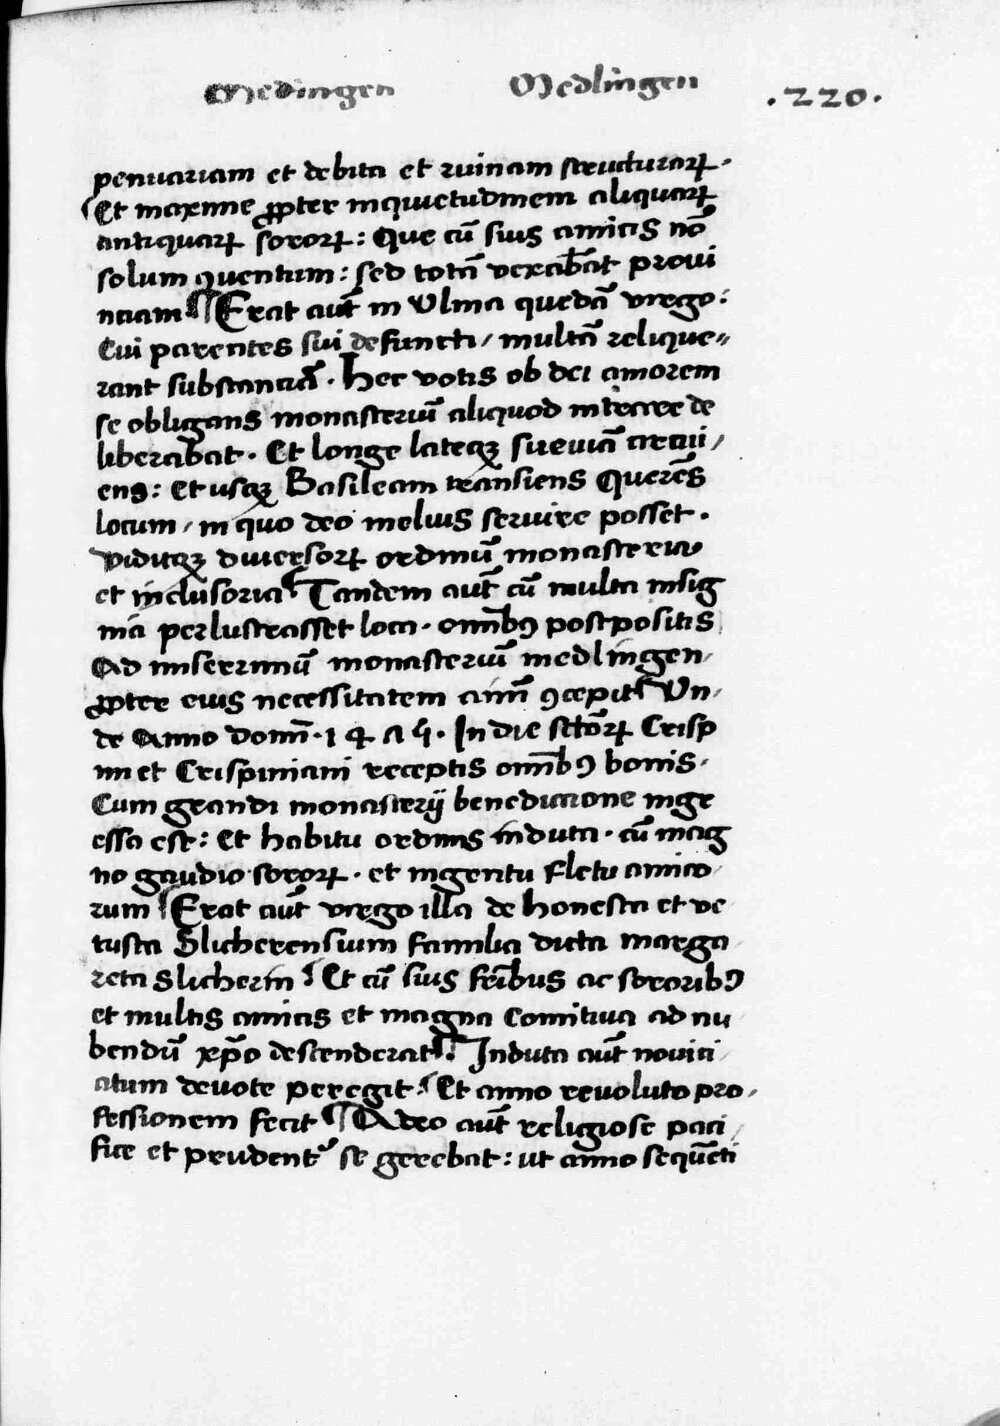 Medingen Medlingen .220.
penuariam et debita et ruinam structurarꝝ.
Et maxime ꝓpter inquietudinem aliquarꝝ
antiquarꝝ sororꝝ: Que cū suis amicis nō
solum ꝯuentum: sed totā vexabāt provi
nciam ¶ Erat aut̄ in Ulma quedā virgo:
Cui parentes sui defuncti / multā relique〃
rant substanciā. Hec votis ob dei amorem
se obligans monasteriū aliquod intrare de
liberabat. Et longe lateqꝫ sueviā circui /
ens: Et usqꝫ Basileam transiens Querēs
locum / in quo deo melius servire posset.
viditqꝫ diuersorꝝ ordinū monasteria
et inclusoria ¶ Tandem aut̄ cū multa insig
nia perlustrasset loca. omībꝰ postpositis
Ad miserrimū monasteriū medlingen /
ꝓpter eius necessitatem aīm ꝯcepit ¶ Un /
de Anno domī. 1 4 Λ 5. In die sctōrꝝ Crisp
ini et Crispiniani receptis omībꝰ bonis.
Cum grandi monasterij benedictione ingr
essa est: Et habitu ordinis induta. cū mag
no gaudio sororꝝ. et ingentu fletu amico
rum ¶ Erat aut̄ virgo illa de honesta et ve
tusta Slicherensium familia dicta marga
reta slicherin ¶ Et cū suis frībus ac sororibꝰ
et multis amicis et magna comitiua ad nu
bendū xp̄o descenderat ¶ Induta aut̄ novici /
atum devote peregit. ¶ Et anno revoluto pro /
fessionem fecit ¶ Adeo aut̄ religiose paci /
fice et prudent̾ se gerebat: ut anno sequēti